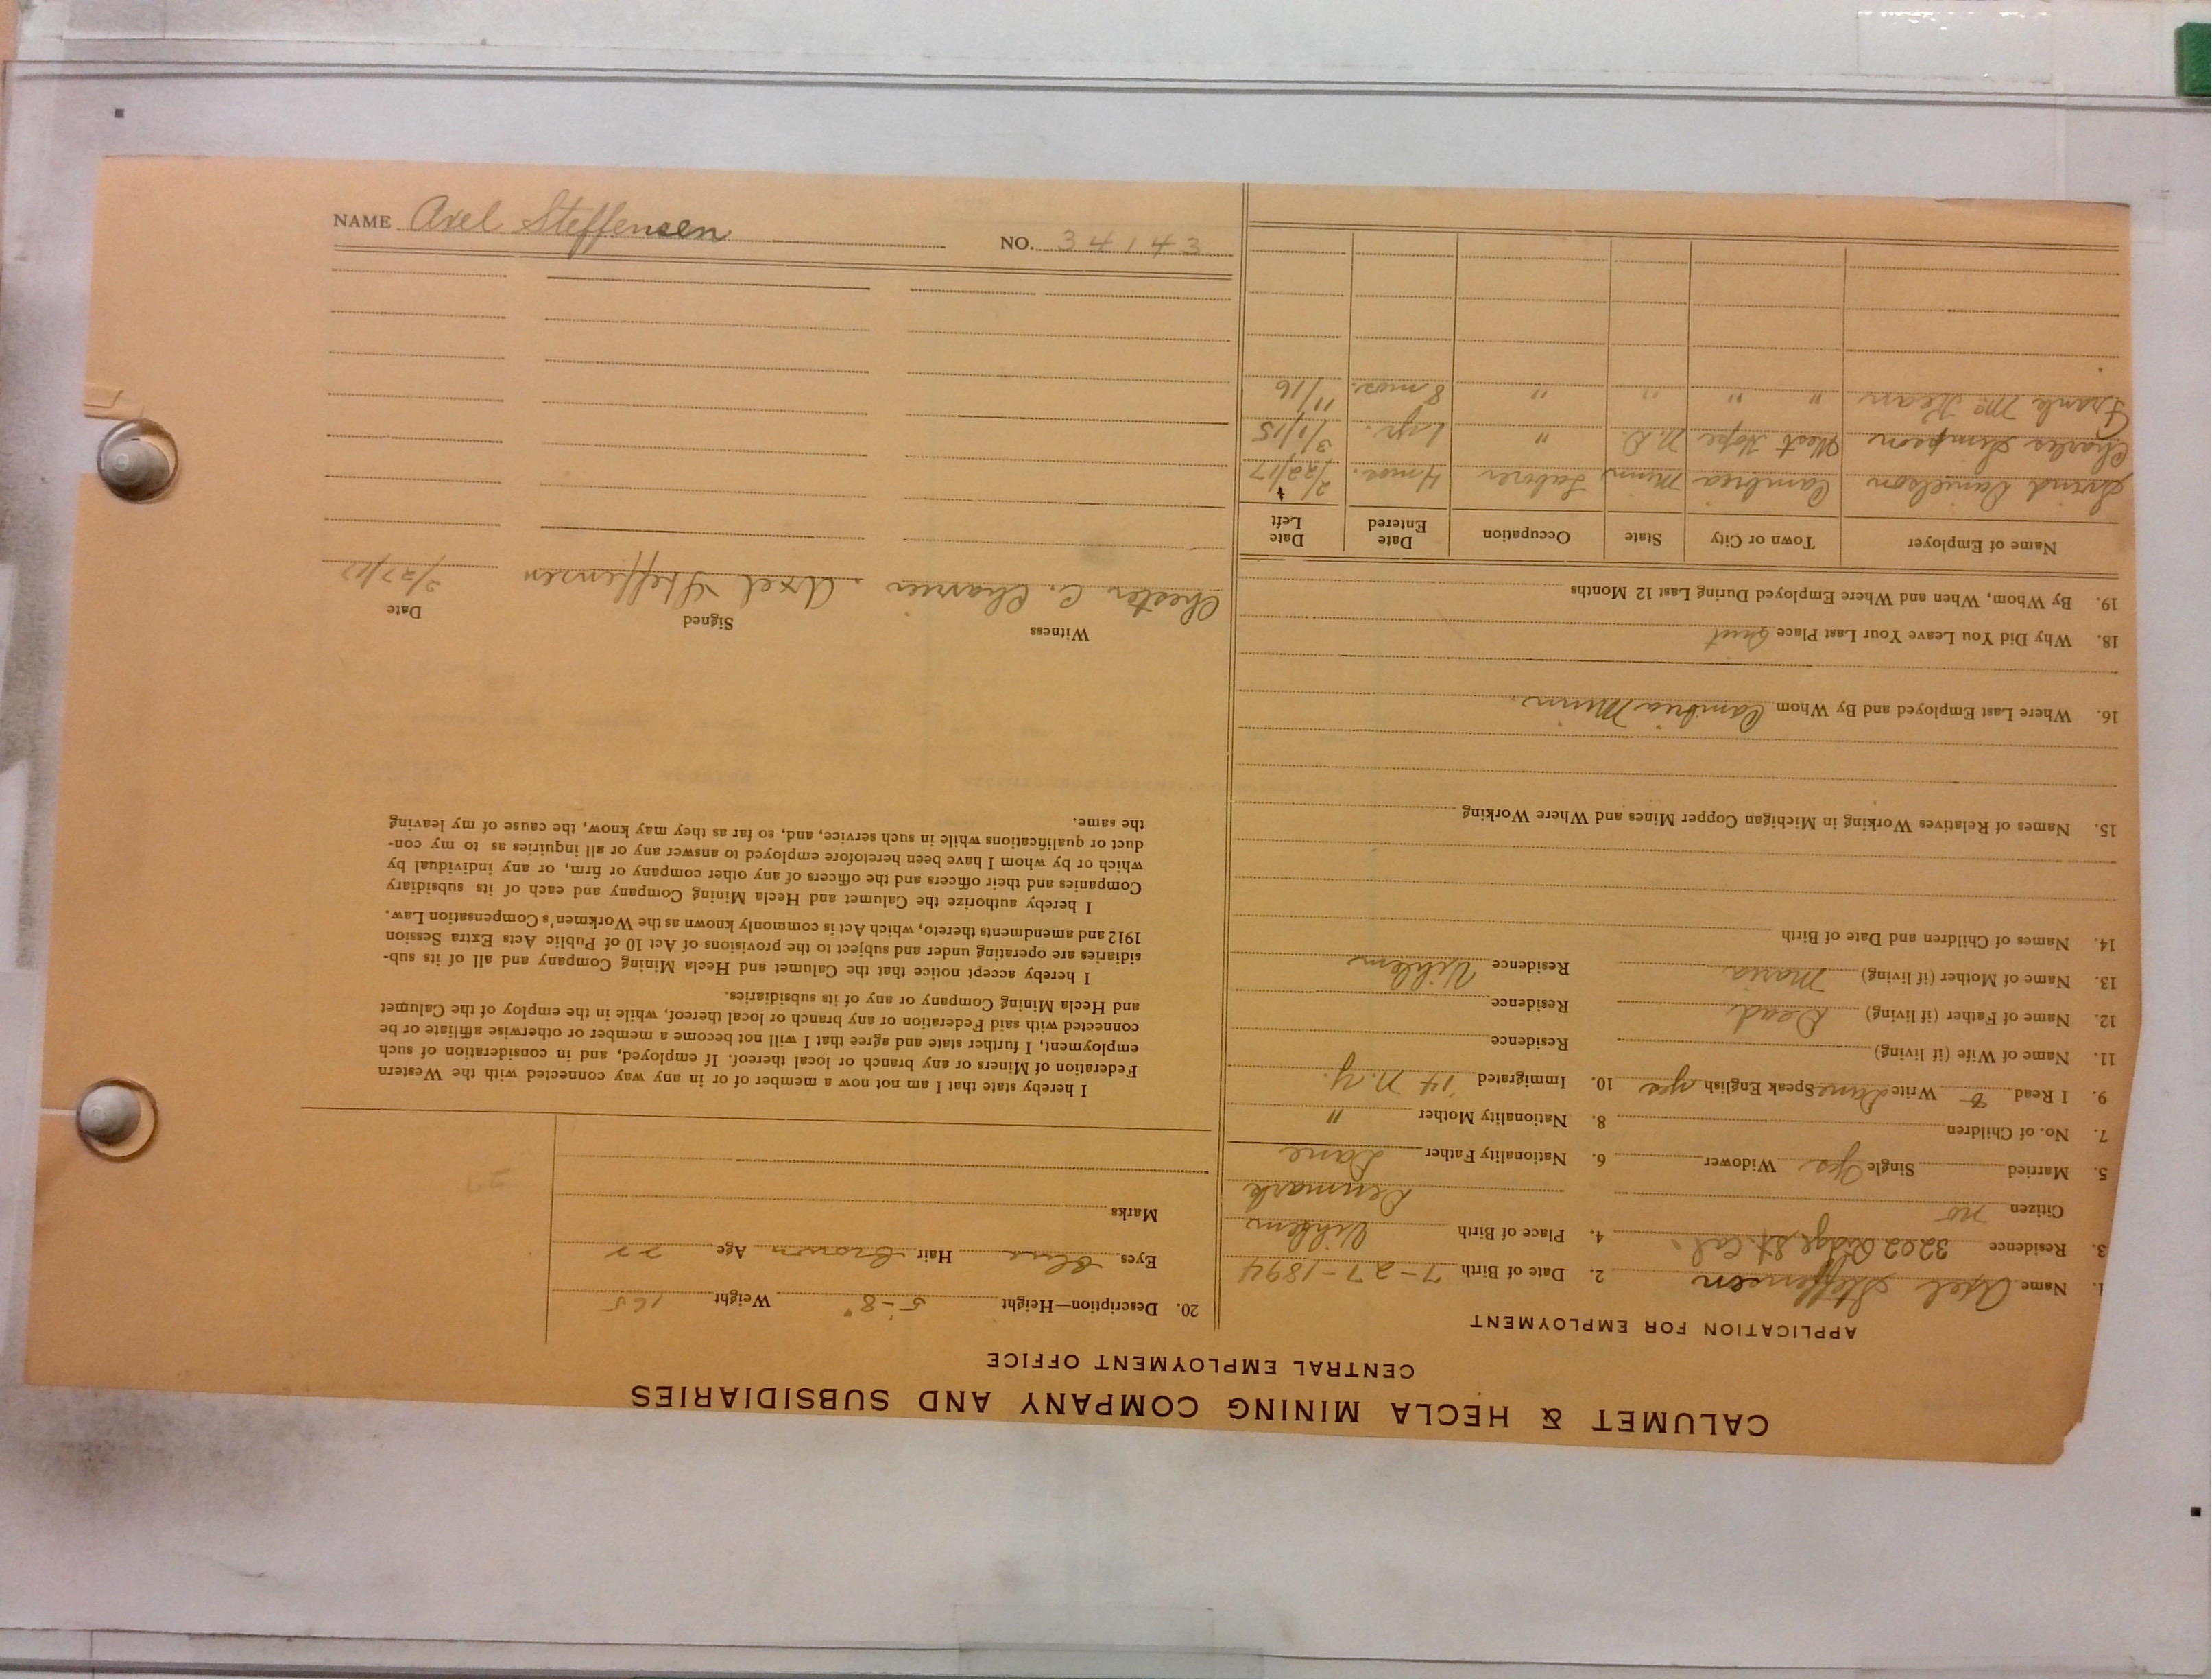 CALUMET & HECLA MINING COMPANY AND SUBSIDIARIES
CENTRAL EMPLOYMENT OFFICE
APPLICATION FOR EMPLOYMENT
1. Name Axel Steffensen
2. Date of Birth 7-27-1894
3. Residence 3202 Ridge St. Cal.
4. Place of Birth
Citizen no Denmark
5. Married Single Yes Widower
6. Nationality Father Dane
7. No. of Children
8. Nationality Mother "
9. I Read & Write Dane Speak English yes
10. Immigrated '14 N.Y.
11. Name of Wife (if living) Residence
12. Name of Father (if living) Dead Residence
13. Name of Mother (if living) Maria Residence
14. Names of Children and Date of Birth
15. Names of Relatives Working in Michigan Copper Mines and Where Working
16. Where Last Employed and By Whom Cambria Minn.
18. Why Did You Leave Your Last Place Quit
19. By Whom, When and Where Employed During Last 12 Months
Name of Employer Town or City State Occupation Date Entered Date Left
Danielson Cambria Minn Laborer 4 mos. 2/22/17
Charles Simpson West Hope N.D. " 1 yr. 3/1/15
Frank McLean " " " " 8 mos. 11/16
20. Description—Height 5-8" Weight 165
Eyes Blue Hair Brown Age 22
Marks
I hereby state that I am not now a member of or in any way connected with the Western
Federation of Miners or any branch or local thereof. If employed, and in consideration of such
employment, I further state and agree that I will not become a member or otherwise affiliate or be
connected with said Federation or any branch or local thereof, while in the employ of the Calumet
and Hecla Mining Company or any of its subsidiaries.
I hereby accept notice that the Calumet and Hecla Mining Company and all of its sub-
sidiaries are operating under and subject to the provisions of Act 10 of Public Acts Extra Session
1912 and amendments thereto, which Act is commonly known as the Workmen's Compensation Law.
I hereby authorize the Calumet and Hecla Mining Company and each of its subsidiary
Companies and their officers and the officers of any other company or firm, or any individual by
which or by whom I have been heretofore employed to answer any or all inquiries as to my con-
duct or qualifications while in such service, and, so far as they may know, the cause of my leaving
the same.
Witness Signed Date
Chester C. Axel Steffensen 2/27/17
NAME Axel Steffensen NO. 34143